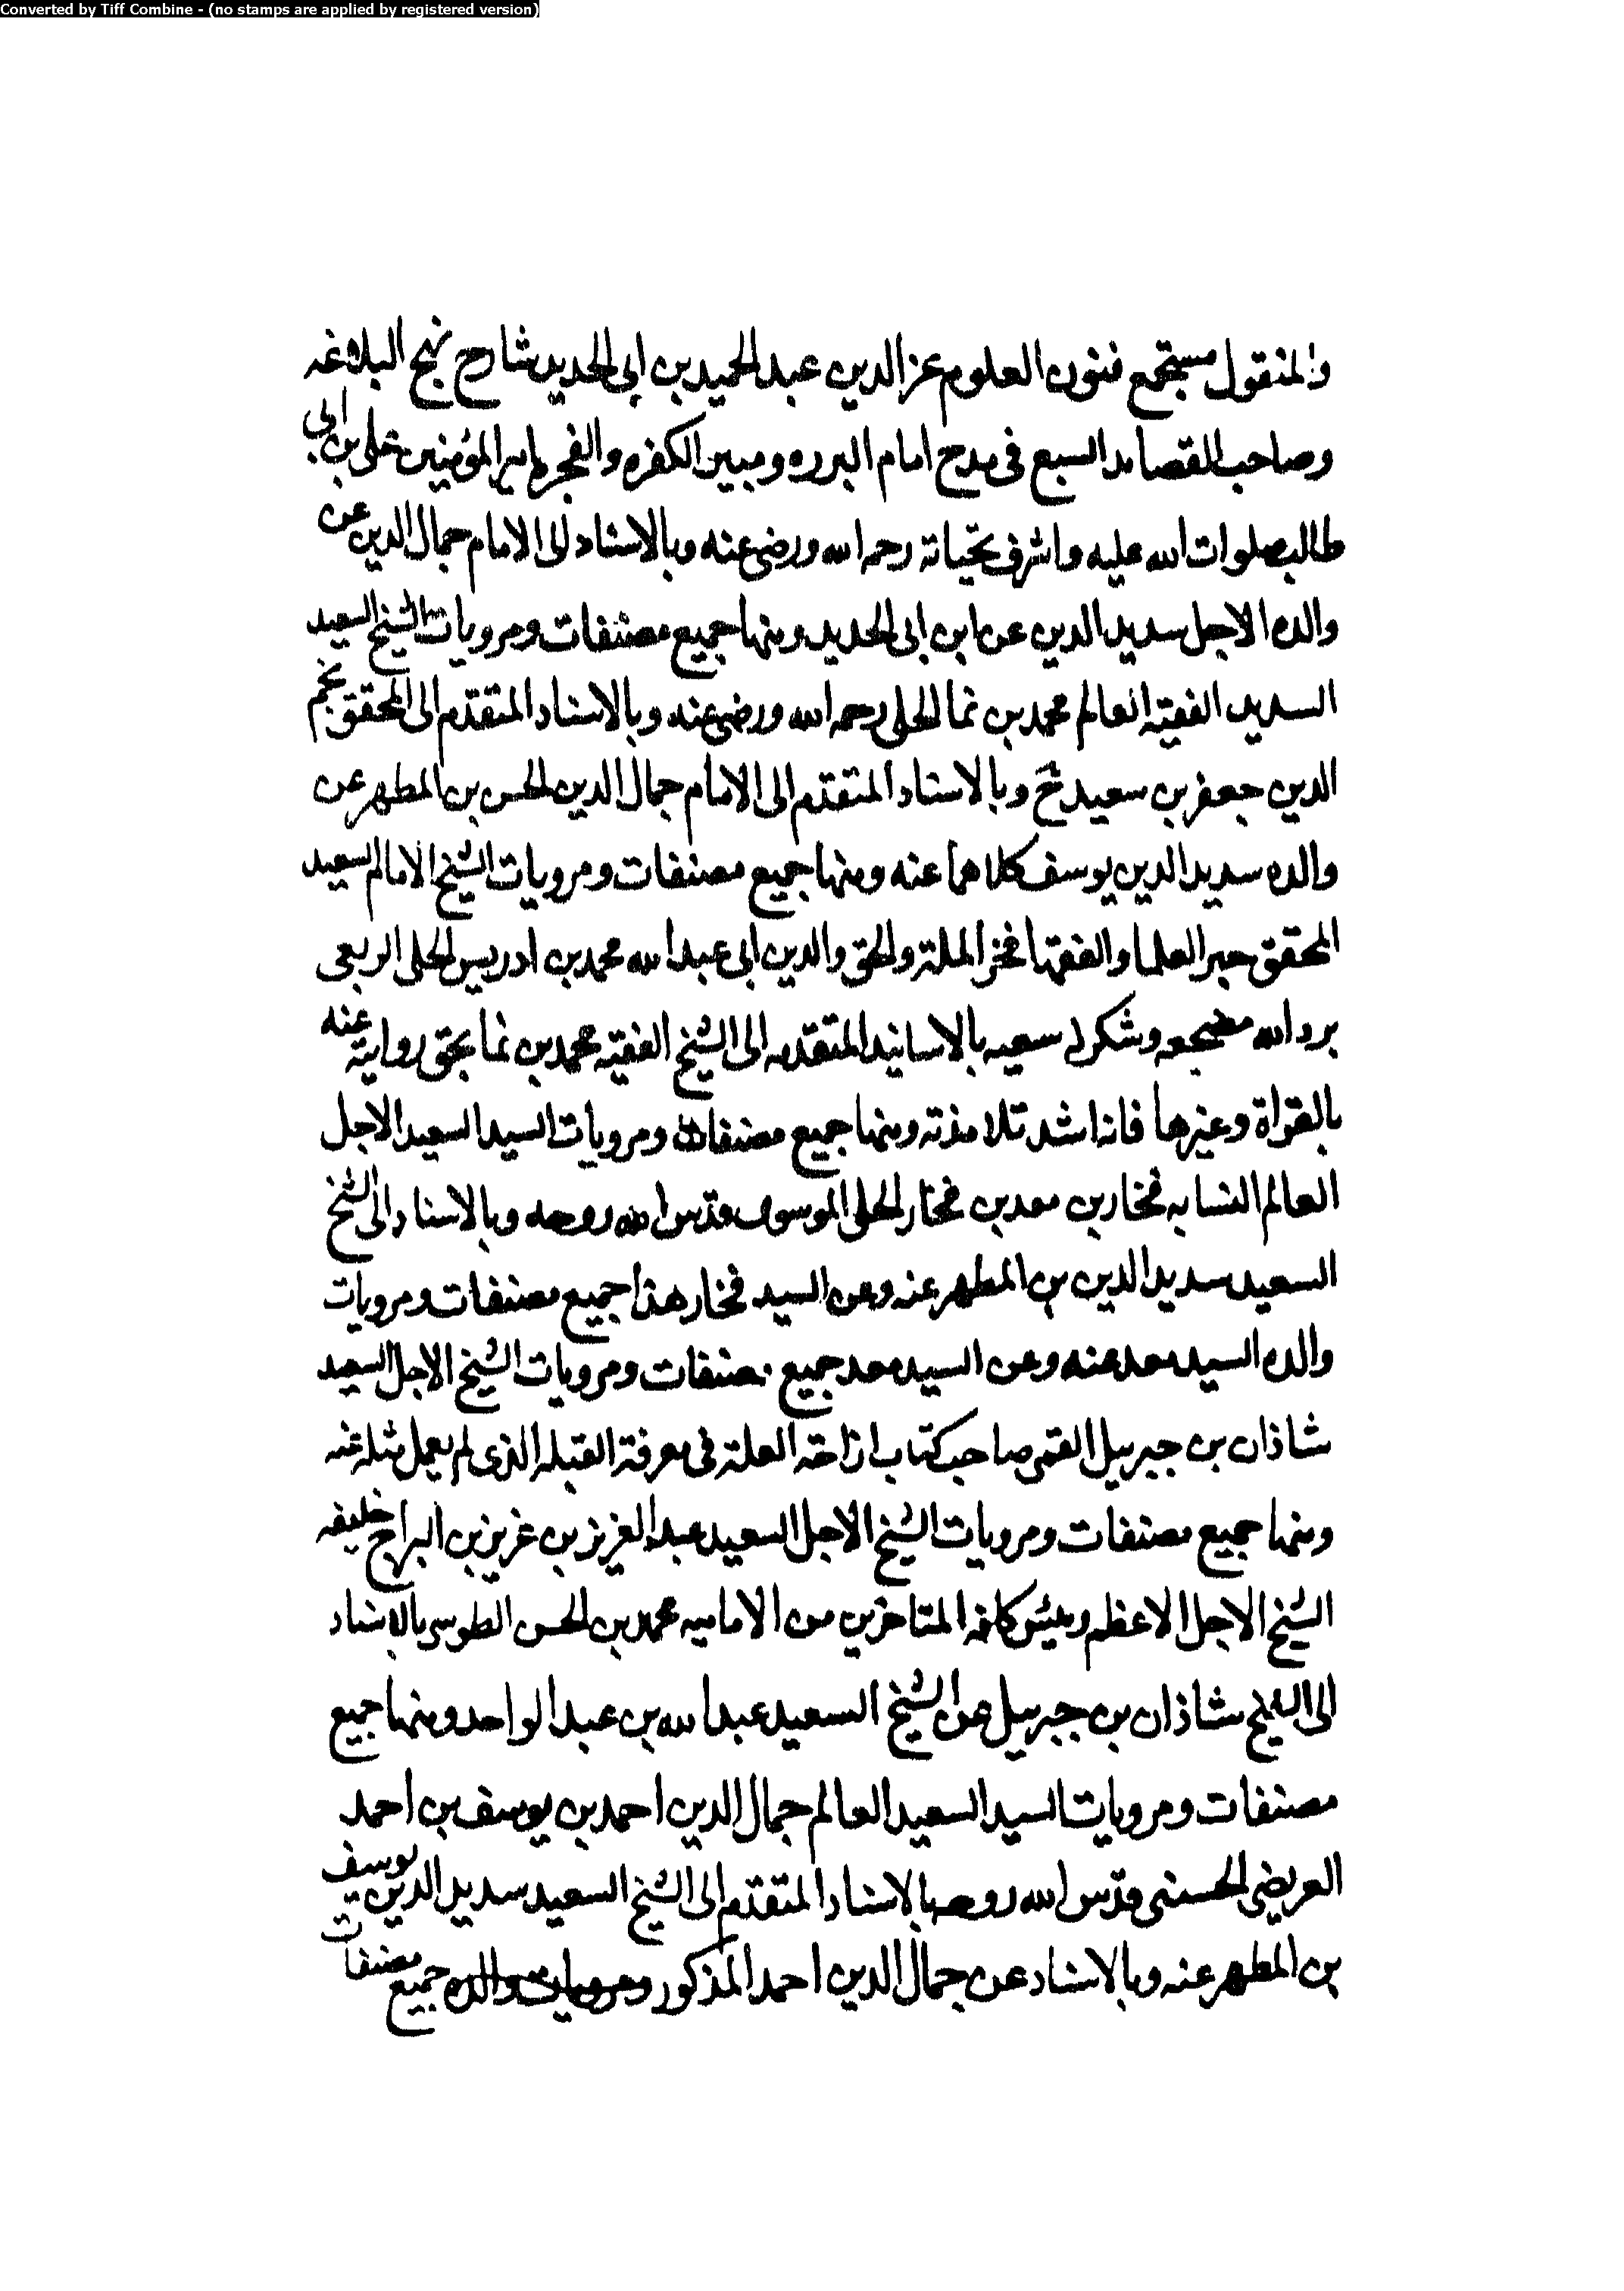 Converted by Tiff Combine - (no stamps are applied by registered version)
والمنقول مستجمع فنون العلوم عز الدين عبد الحميد بن ابى الحديد شارح نهج البلاغه
وصاحب القصايد السبع فى مدح امام البرره ومبير الكفره والفجره امير المؤمنين على بن ابى
طالب صلوات الله عليه واشرف تحياته رحمه الله ورضى عنه وبالاسناد الى الامام جمال الدين عن
والده الاجل سديد الدين عن ابن ابى الحديد ومنها جميع مصنفات ومرويات الشيخ السعيد
السديد الفقيه العالم محمد بن نما الحلى رحمه الله ورضى عنه وبالاسناد المتقدم الى المحقق نجم
الدين جعفر بن سعيد وبالاسناد المتقدم الى الامام جمال الدين الحسن بن المطهر عن
والده سديد الدين يوسف كلاهما عنه ومنها جميع مصنفات ومرويات الشيخ الامام السعيد
المحقق حبر العلما والفقها فخر الملة والحق والدين ابى عبد الله محمد بن ادريس الحلى الربعى
برد الله مضجعه وشكر له سعيه بالاسانيد المتقدمه الى الشيخ الفقيه محمد بن نما بحق روايته عنه
بالقراة وغيرها فانه اشد تلامذته ومنها جميع مصنفات ومرويات السيد السعيد الاجل
العالم النسابه فخار بن معد بن فخار الحلى الموسوى قدس الله روحه وبالاسناد الى الشيخ
السعيد سديد الدين بن المطهر عنه وعن السيد فخار هذا جميع مصنفات ومرويات
والده السيد معد عنه وعن السيد معد جميع مصنفات ومرويات الشيخ الاجل السعيد
شاذان بن جبريل القمى صاحب كتاب ازاحة العلة فى معرفة القبله الذى لم يعمل مثله عنه
ومنها جميع مصنفات ومرويات الشيخ الاجل السعيد عبد العزيز بن عزيز بن البراج خليفه
الشيخ الاجل الاعظم ورئيس كافه المتاخرين من الاماميه محمد بن الحسن الطوسى بالاسناد
الى الشيخ شاذان بن جبريل عن الشيخ السعيد عبد الله بن عبد الواحد ومنها جميع
مصنفات ومرويات السيد السعيد العالم جمال الدين احمد بن يوسف بن احمد
العريضى الحسنى قدس الله روحه بالاسناد المتقدم الى الشيخ السعيد سديد الدين يوسف
بن المطهر عنه وبالاسناد عن جمال الدين احمد المذكور ومرويات والده جميع مصنفات